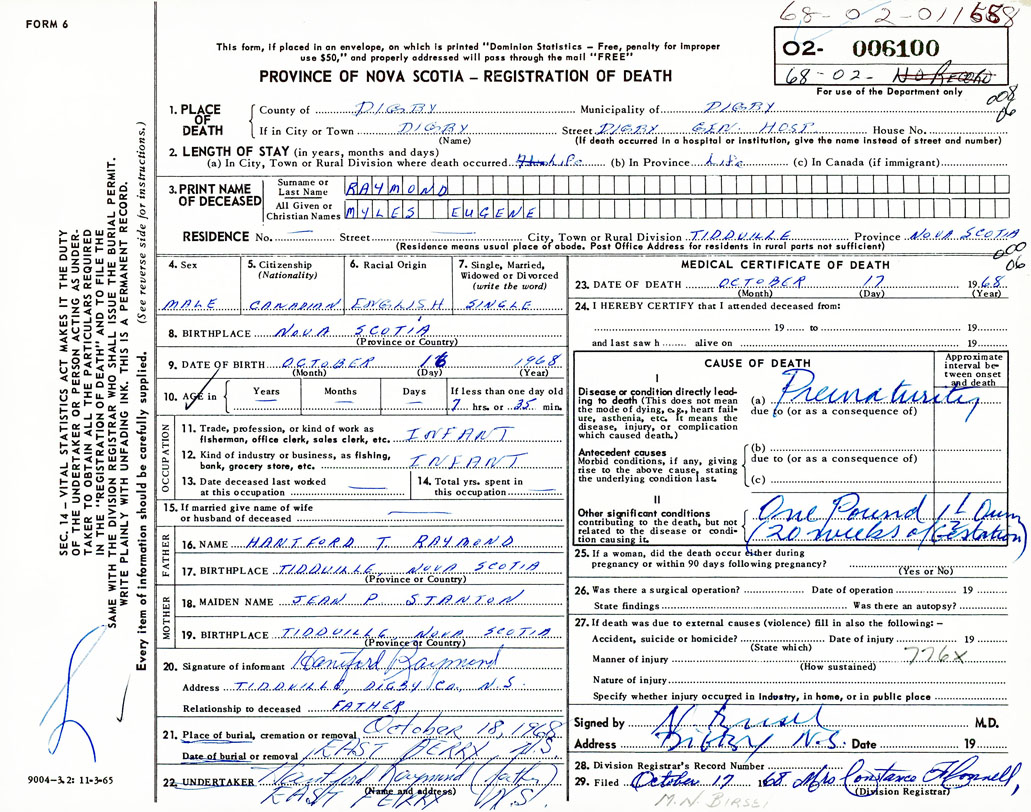 FORM 6
68-02-011558
This form, if placed in an envelope, on which is printed "Dominion Statistics – Free, penalty for improper
use $50," and properly addressed will pass through the mail "FREE"
PROVINCE OF NOVA SCOTIA – REGISTRATION OF DEATH
02- 006100
68-02- NO RECORD
For use of the Department only
008
06
1. PLACE OF DEATH
County of DIGBY Municipality of DIGBY
If in City or Town DIGBY Street DIGBY GEN. HOSP House No.
(Name) (If death occurred in a hospital or institution, give the name instead of street and number)
2. LENGTH OF STAY (in years, months and days)
(a) In City, Town or Rural Division where death occurred Life (b) In Province Life (c) In Canada (if immigrant)
3. PRINT NAME OF DECEASED
Surname or Last Name RAYMOND
All Given or Christian Names MYLES EUGENE
RESIDENCE No. — Street — City, Town or Rural Division TIDDVILLE Province NOVA SCOTIA
(Residence means usual place of abode. Post Office Address for residents in rural parts not sufficient)
000
06
4. Sex
MALE
5. Citizenship
(Nationality)
CANADIAN
6. Racial Origin
ENGLISH
7. Single, Married,
Widowed or Divorced
(write the word)
SINGLE
8. BIRTHPLACE NOVA SCOTIA
(Province or Country)
9. DATE OF BIRTH OCTOBER 16 1968
(Month) (Day) (Year)
10. AGE in
Years —
Months —
Days —
If less than one day old
7 hrs. or 35 min.
OCCUPATION
11. Trade, profession, or kind of work as
fisherman, office clerk, sales clerk, etc. INFANT
12. Kind of industry or business, as fishing,
bank, grocery store, etc. INFANT
13. Date deceased last worked
at this occupation —
14. Total yrs. spent in
this occupation —
15. If married give name of wife
or husband of deceased —
FATHER
16. NAME HANTFORD T. RAYMOND
17. BIRTHPLACE TIDDVILLE, NOVA SCOTIA
(Province or Country)
MOTHER
18. MAIDEN NAME JEAN P STANTON
19. BIRTHPLACE TIDDVILLE NOVA SCOTIA
(Province or Country)
20. Signature of informant Hantford Raymond
Address TIDDVILLE, DIGBY CO. N.S.
Relationship to deceased FATHER
21. Place of burial, cremation or removal October 18, 1968
Date of burial or removal EAST FERRY, N.S
22. UNDERTAKER Hantford Raymond (Father)
(Name and address)
EAST FERRY N.S.
MEDICAL CERTIFICATE OF DEATH
23. DATE OF DEATH OCTOBER 17 1968
(Month) (Day) (Year)
24. I HEREBY CERTIFY that I attended deceased from:
19 to 19
and last saw h alive on 19
CAUSE OF DEATH
Approximate
interval be-
tween onset
and death
I
Disease or condition directly lead-
ing to death (This does not mean
the mode of dying, e.g., heart fail-
ure, asthenia, etc. It means the
disease, injury, or complication
which caused death.)
(a) Prematurity
due to (or as a consequence of)
Antecedent causes
Morbid conditions, if any, giving
rise to the above cause, stating
the underlying condition last.
(b)
due to (or as a consequence of)
(c)
II
Other significant conditions
contributing to the death, but not
related to the disease or condi-
tion causing it.
One Pound 1½ Oun
(20 weeks of Gestation)
25. If a woman, did the death occur either during
pregnancy or within 90 days following pregnancy?
(Yes or No)
26. Was there a surgical operation? Date of operation 19
State findings Was there an autopsy?
27. If death was due to external causes (violence) fill in also the following: –
Accident, suicide or homicide? Date of injury 19
(State which)
776X
Manner of injury
(How sustained)
Nature of injury
Specify whether injury occurred in Industry, in home, or in public place
Signed by M.D.
Address Digby N.S. Date 19
28. Division Registrar's Record Number
29. Filed October 17 1968 Mrs Constance
(Division Registrar)
SEC. 14 – VITAL STATISTICS ACT MAKES IT THE DUTY
OF THE UNDERTAKER OR PERSON ACTING AS UNDER-
TAKER TO OBTAIN ALL THE PARTICULARS REQUIRED
IN THE "REGISTRATION OF DEATH" AND TO FILE THE
SAME WITH THE DIVISION REGISTRAR WHO SHALL ISSUE THE BURIAL PERMIT.
WRITE PLAINLY WITH UNFADING INK. THIS IS A PERMANENT RECORD.
Every item of information should be carefully supplied. (See reverse side for instructions.)
9004–3.2: 11-3-65